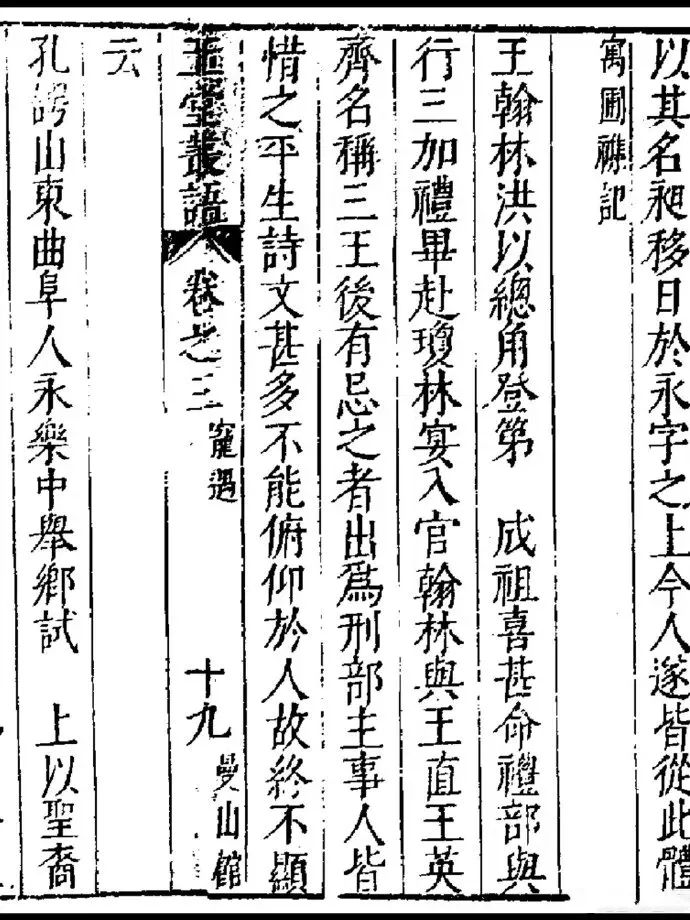 以其名昶移日於永字之上今人遂皆從此體
寓圃襍記
王翰林洪以總角登第 成祖喜甚命禮部與
行三加禮畢赴瓊林宴入官翰林與王直王英
齊名稱三王後有忌之者出爲刑部主事人皆
惜之平生詩文甚多不能俯仰於人故終不顯
玉堂叢語 卷之三 寵遇 十九 曼山館
云
孔諤山東曲阜人永樂中舉鄉試 上以聖裔